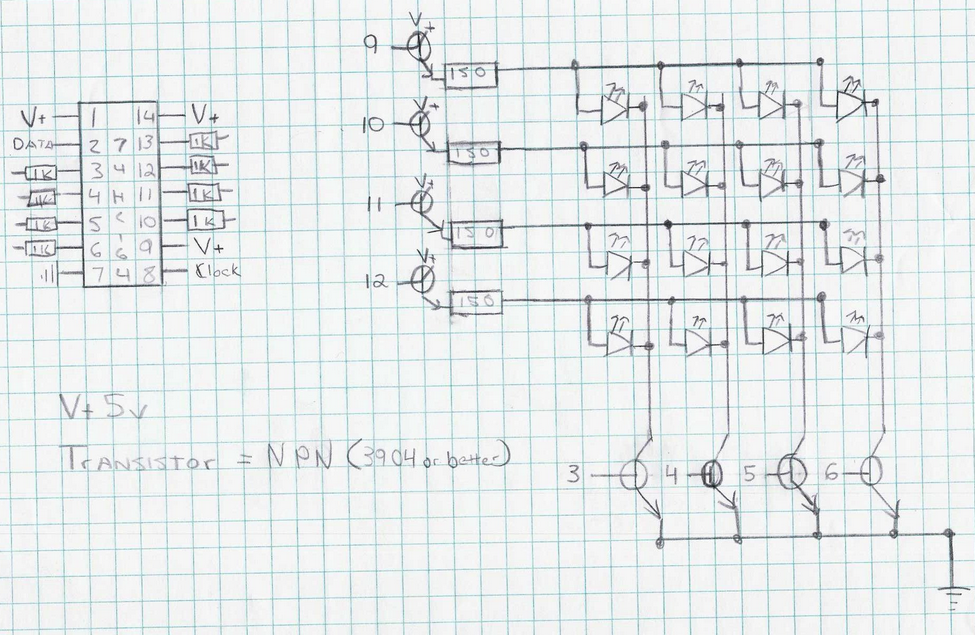 V+ 1 14 V+
DATA 2 7 13 1K
1K 3 4 12 1K
1K 4 H 11 1K
1K 5 C 10 1K
1K 6 1 6 9 V+
7 4 8 Clock
V+
9
150
V+
10
150
V+
11
150
V+
12
150
V+ 5v
TRANSISTOR = NPN (3904 or better)
3 4 5 6